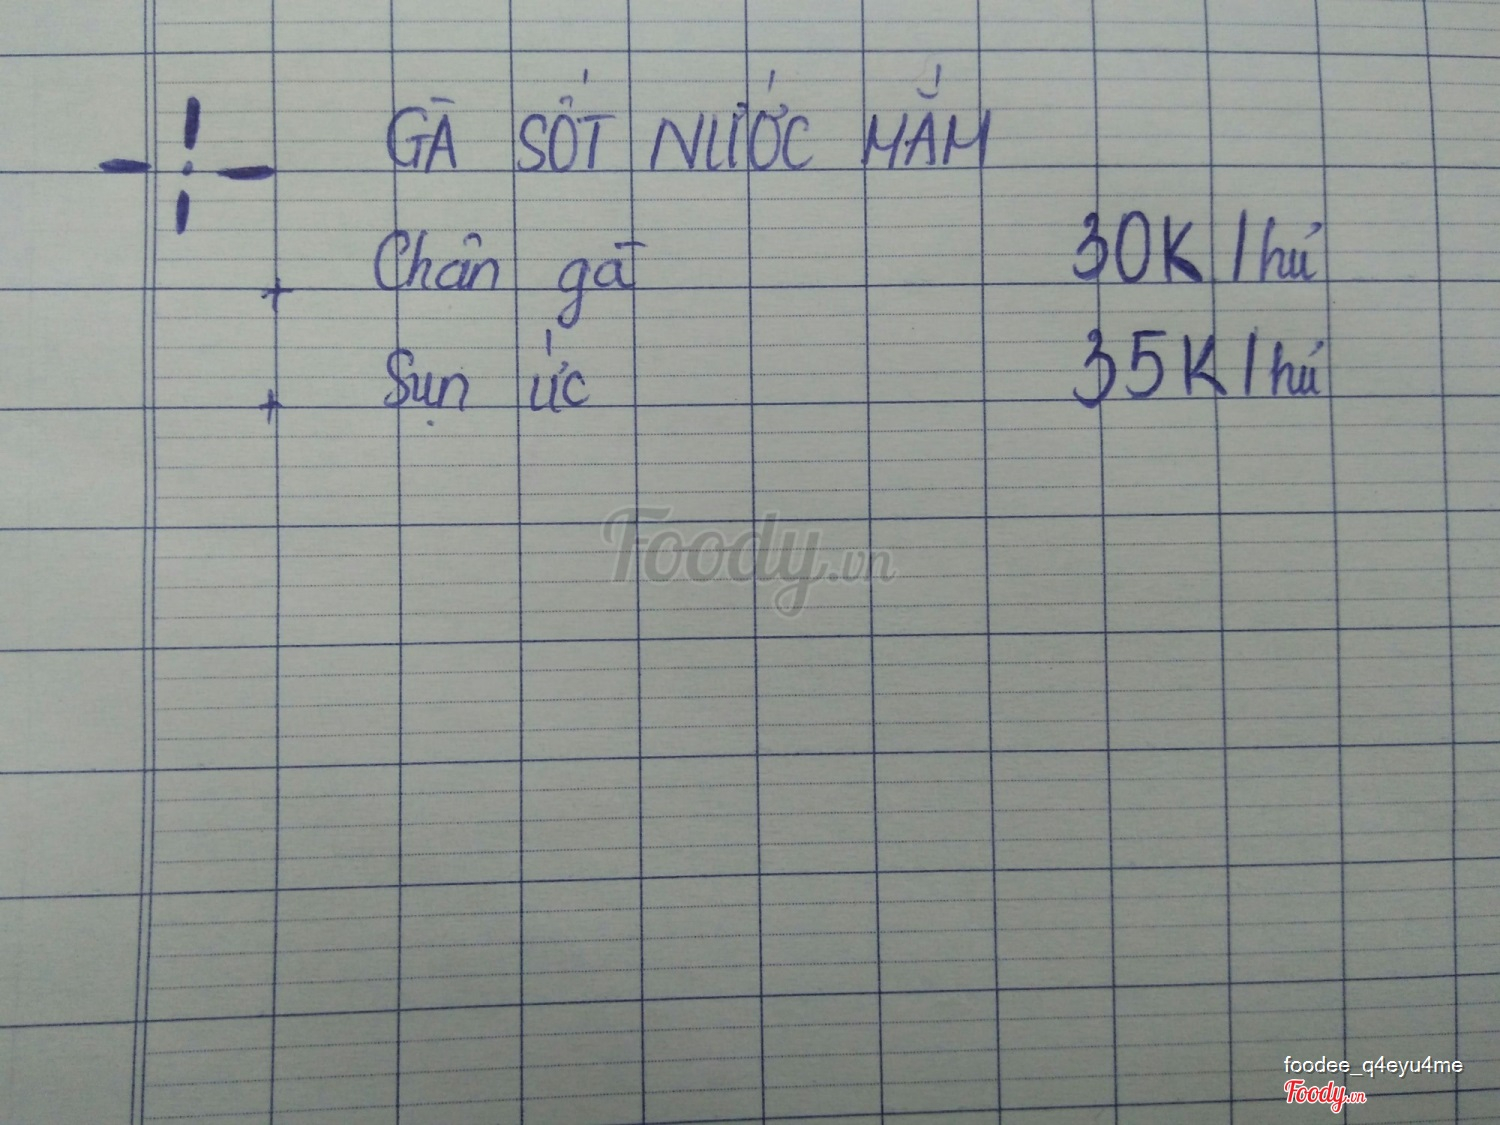 GÀ SỐT NƯỚC MẮM
+ Chân gà 30K/hủ
+ Sụn ức 35K/hủ
Foody.vn
foodee_q4eyu4me
Foody.vn